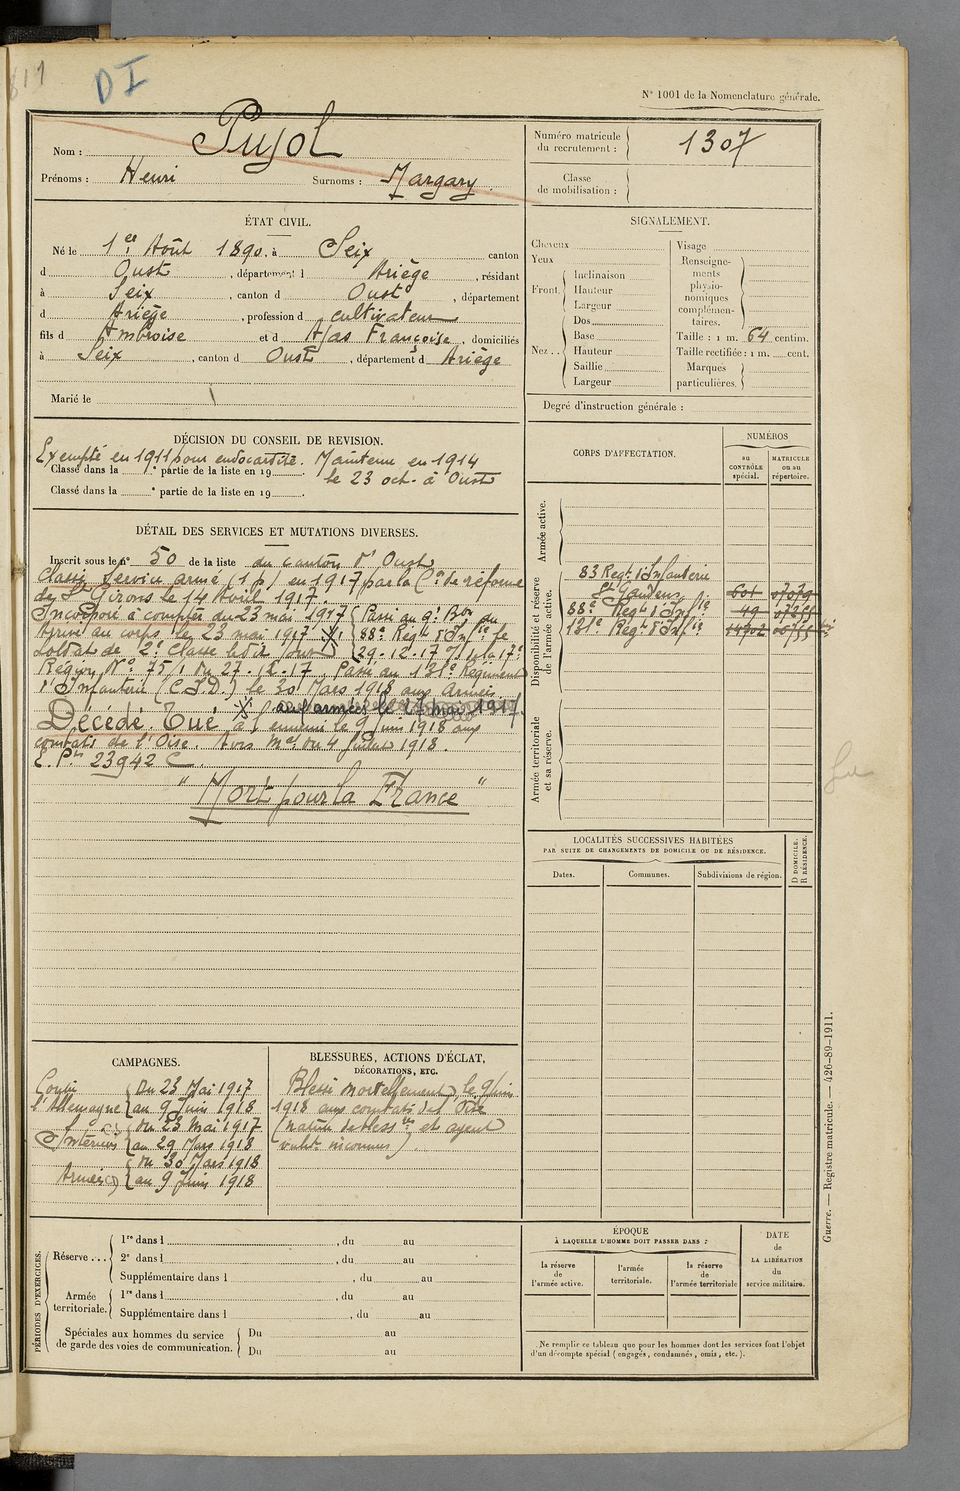 D I
N° 1001 de la Nomenclature générale.
Nom : Pujol
Prénoms : Henri Surnoms : Margary
Numéro matricule du recrutement : 1307
Classe de mobilisation :
ÉTAT CIVIL.
Né le 1er Août 1890, à Seix canton
d Oust, département d Ariège, résidant
à Seix, canton d Oust, département
d Ariège, profession d cultivateur
fils d Ambroise et d Françoise, domiciliés
à Seix, canton d Oust, département d Ariège
Marié le
SIGNALEMENT.
Cheveux
Yeux
Front. Inclinaison
Hauteur
Largeur
Nez.. Dos
Base
Hauteur
Saillie
Largeur
Visage
Renseignements physionomiques complémentaires.
Taille : 1 m. 64 centim.
Taille rectifiée : 1 m. cent.
Marques particulières.
Degré d'instruction générale :
DÉCISION DU CONSEIL DE REVISION.
Exempté en 1911 pour endocardite. Maintenu en 1914
Classé dans la e partie de la liste en 19 le 23 oct. à Oust
Classé dans la e partie de la liste en 19
DÉTAIL DES SERVICES ET MUTATIONS DIVERSES.
Inscrit sous le n° 50 de la liste du canton d'Oust
Classé service armé (1 p) en 1917 par la Con de réforme
de St Girons le 14 Avril 1917
Incorporé à compter du 23 mai 1917 Passé au 9e Bon du
Arrivé au corps le 23 mai 1917 88e Regt d'Infie le
soldat de 2e Classe ledit jour 29-12-17
Région N° 75/1 du 27.12.17 Passé au 131e Régiment
d'Infanterie (C.I.D.) le 30 Mars 1918 aux Armées
aux armées le 17 mai 1917.
Décédé. Tué à l'ennemi le 9 juin 1918 aux
combats de l'Oise. Avis Mel du 4 Juillet 1918.
23942 C
" Mort pour la France "
CORPS D'AFFECTATION.
NUMÉROS
au CONTRÔLE spécial.
MATRICULE ou au répertoire.
Armée active.
Disponibilité et réserve de l'armée active.
83 Regt d'Infanterie
St Gaudens
88e Regt d'Infie 49
131e Regt d'Infie
Armée territoriale et sa réserve.
LOCALITÉS SUCCESSIVES HABITÉES
PAR SUITE DE CHANGEMENTS DE DOMICILE OU DE RÉSIDENCE.
Dates. Communes. Subdivisions de région. D DOMICILE. R RÉSIDENCE.
CAMPAGNES.
Contre l'Allemagne du 23 Mai 1917
au 9 Juin 1918
Intérieur du 23 Mai 1917
au 29 Mars 1918
Armées du 30 Mars 1918
au 9 Juin 1918
BLESSURES, ACTIONS D'ÉCLAT,
DÉCORATIONS, ETC.
Blessé mortellement le 9 Juin
1918 aux combats de l'Oise
(nature de bless res et agent
vulnt inconnus)
PÉRIODES D'EXERCICES.
Réserve... 1re dans l , du au
2e dans l , du au
Supplémentaire dans l , du au
Armée territoriale. 1re dans l , du au
Supplémentaire dans l , du au
Spéciales aux hommes du service
de garde des voies de communication. Du au
Du au
ÉPOQUE
À LAQUELLE L'HOMME DOIT PASSER DANS :
la réserve de l'armée active.
l'armée territoriale.
la réserve de l'armée territoriale
DATE de LA LIBÉRATION du service militaire.
Ne remplir ce tableau que pour les hommes dont les services font l'objet
d'un décompte spécial (engagés, condamnés, omis, etc.).
Guerre. — Registre matricule. — 426-89-1911.